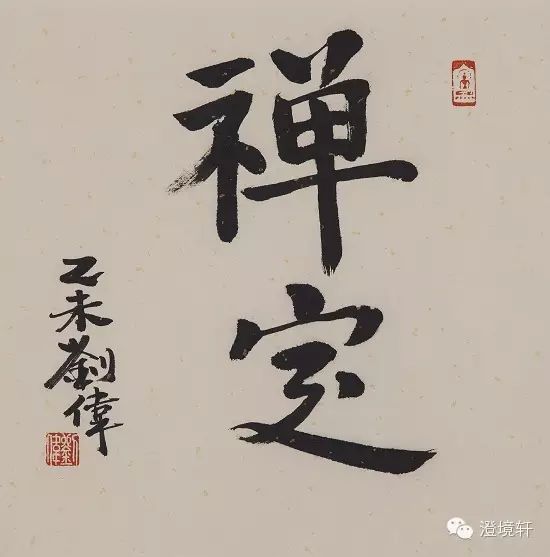 禅定
乙未劉偉
澄境轩